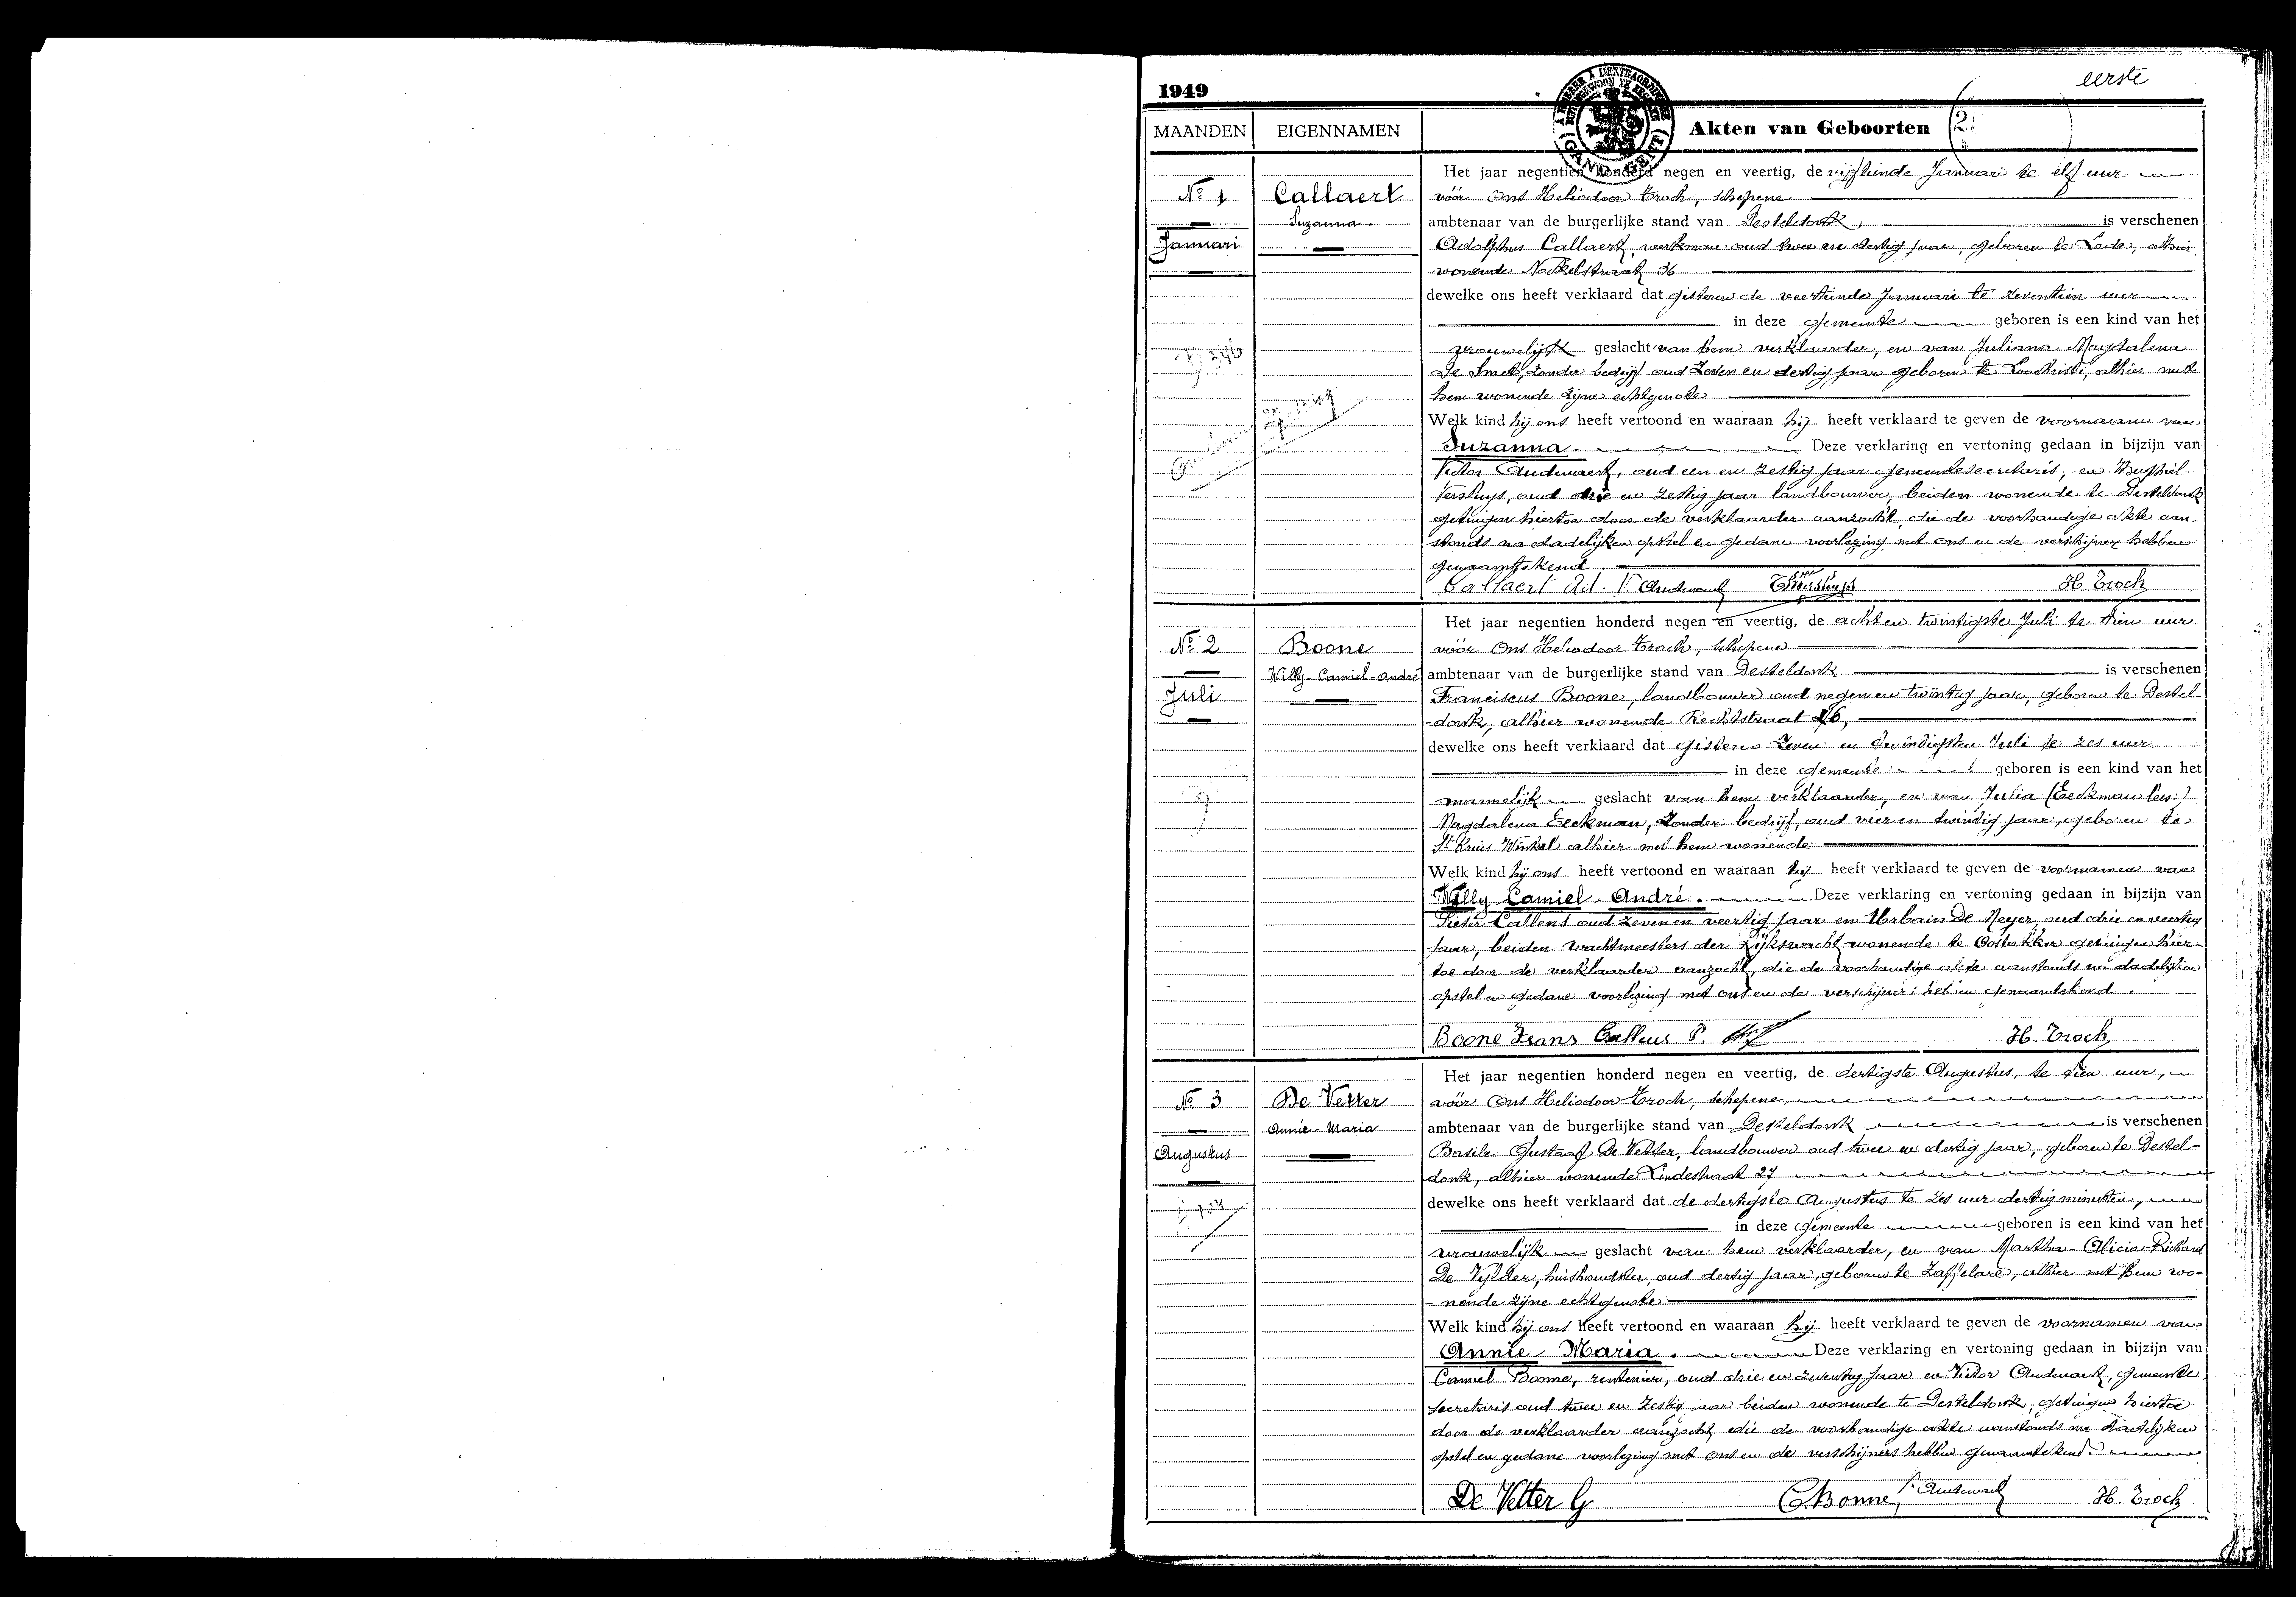 1949
eerste
MAANDEN EIGENNAMEN Akten van Geboorten 2
A TIMBRER A L'EXTRAORDINAIRE
GAND GENT
Nº 1
Januari
Callaert
Suzanna.
Het jaar negentien honderd negen en veertig, de vijftiende Januari te elf uur
vóór Ons Heliodoor Troch, schepene
ambtenaar van de burgerlijke stand van Desteldonk, is verschenen
Adolphus Callaert, werkman oud twee en dertig jaar, geboren te Lede, alhier
wonende 36
dewelke ons heeft verklaard dat gisteren de veertiende Januari te zeventien uur
in deze gemeente geboren is een kind van het
vrouwelijk geslacht van hem verklaarder, en van Juliana Magdalena
De Smet, zonder bedrijf oud zeven en dertig jaar geboren te Loochristi, alhier met
hem wonende zijne echtgenote
Welk kind hij ons heeft vertoond en waaraan hij heeft verklaard te geven de voornaam van
Suzanna. Deze verklaring en vertoning gedaan in bijzijn van
Victor Audenaert, oud een en zestig jaar gemeentesecretaris, en Theophiel
Versluys, oud drie en zestig jaar landbouwer, beiden wonende te Desteldonk
getuigen hiertoe door de verklaarder aanzocht, die de voorhandige akte aan-
stonds na dadelijken opstel en gedane voorlezing met ons en de verschijner hebben
genaamtekend.
Callaert Ad. V. Audenaert H. Troch
Nº 2
Juli
Boone
Willy-Camiel-André
Het jaar negentien honderd negen en veertig, de acht en twintigste Juli te tien uur
vóór Ons Heliodoor Troch, schepene
ambtenaar van de burgerlijke stand van Desteldonk is verschenen
Franciscus Boone, landbouwer oud negen en twintig jaar, geboren te Destel-
-donk, alhier wonende Rechtstraat
dewelke ons heeft verklaard dat gisteren zeven en twindigsten Juli te zes uur
in deze gemeente geboren is een kind van het
mannelijk geslacht van hem verklaarder, en van Julia (Eeckman lees:)
Magdalena Eeckman, zonder bedrijf, oud vier en twindig jaar, geboren te
St Kruis Winkel alhier met hem wonende
Welk kind hij ons heeft vertoond en waaraan hij heeft verklaard te geven de voornamen van
Willy Camiel. André. Deze verklaring en vertoning gedaan in bijzijn van
Pieter Callens oud zeven en veertig jaar en Urbain De Meyer oud drie en veertig
jaar, beiden wachtmeesters der Rijkswacht wonende te Oostakker getuigen hier-
toe door de verklaarder aanzocht, die de voorhandige akte aanstonds na dadelijken
opstel en gedane voorlezing met ons en de verschijners hebben genaamtekend.
Boone Frans Callens P. H. Troch
Nº 3
Augustus
De Vetter
Annie-Maria
Het jaar negentien honderd negen en veertig, de dertigste Augustus, te tien uur,
vóór Ons Heliodoor Troch, schepene,
ambtenaar van de burgerlijke stand van Desteldonk is verschenen
Basile Gustaaf De Vetter, landbouwer oud twee en dertig jaar, geboren te Destel-
donk, alhier wonende Lindestraat 27
dewelke ons heeft verklaard dat de dertigste Augustus te zes uur dertig minuten,
in deze gemeente geboren is een kind van het
vrouwelijk geslacht van hem verklaarder, en van Martha-Alicia-Richard
De Vylder, huishoudster, oud dertig jaar, geboren te Zaffelare, alhier met hem wo-
-nende zijne echtgenote
Welk kind hij ons heeft vertoond en waaraan hij heeft verklaard te geven de voornamen van
Annie Maria. Deze verklaring en vertoning gedaan in bijzijn van
Camiel Bonne, rentenier, oud drie en zeventig jaar en Victor Audenaert, gemeente
secretaris oud twee en zestig jaar beiden wonende te Desteldonk, getuigen hiertoe
door de verklaarder aanzocht, die de voorhandige akte aanstonds na dadelijken
opstel en gedane voorlezing met ons en de verschijners hebben genaamtekend.
De Vetter G C Bonne, V. Audenaert H. Troch